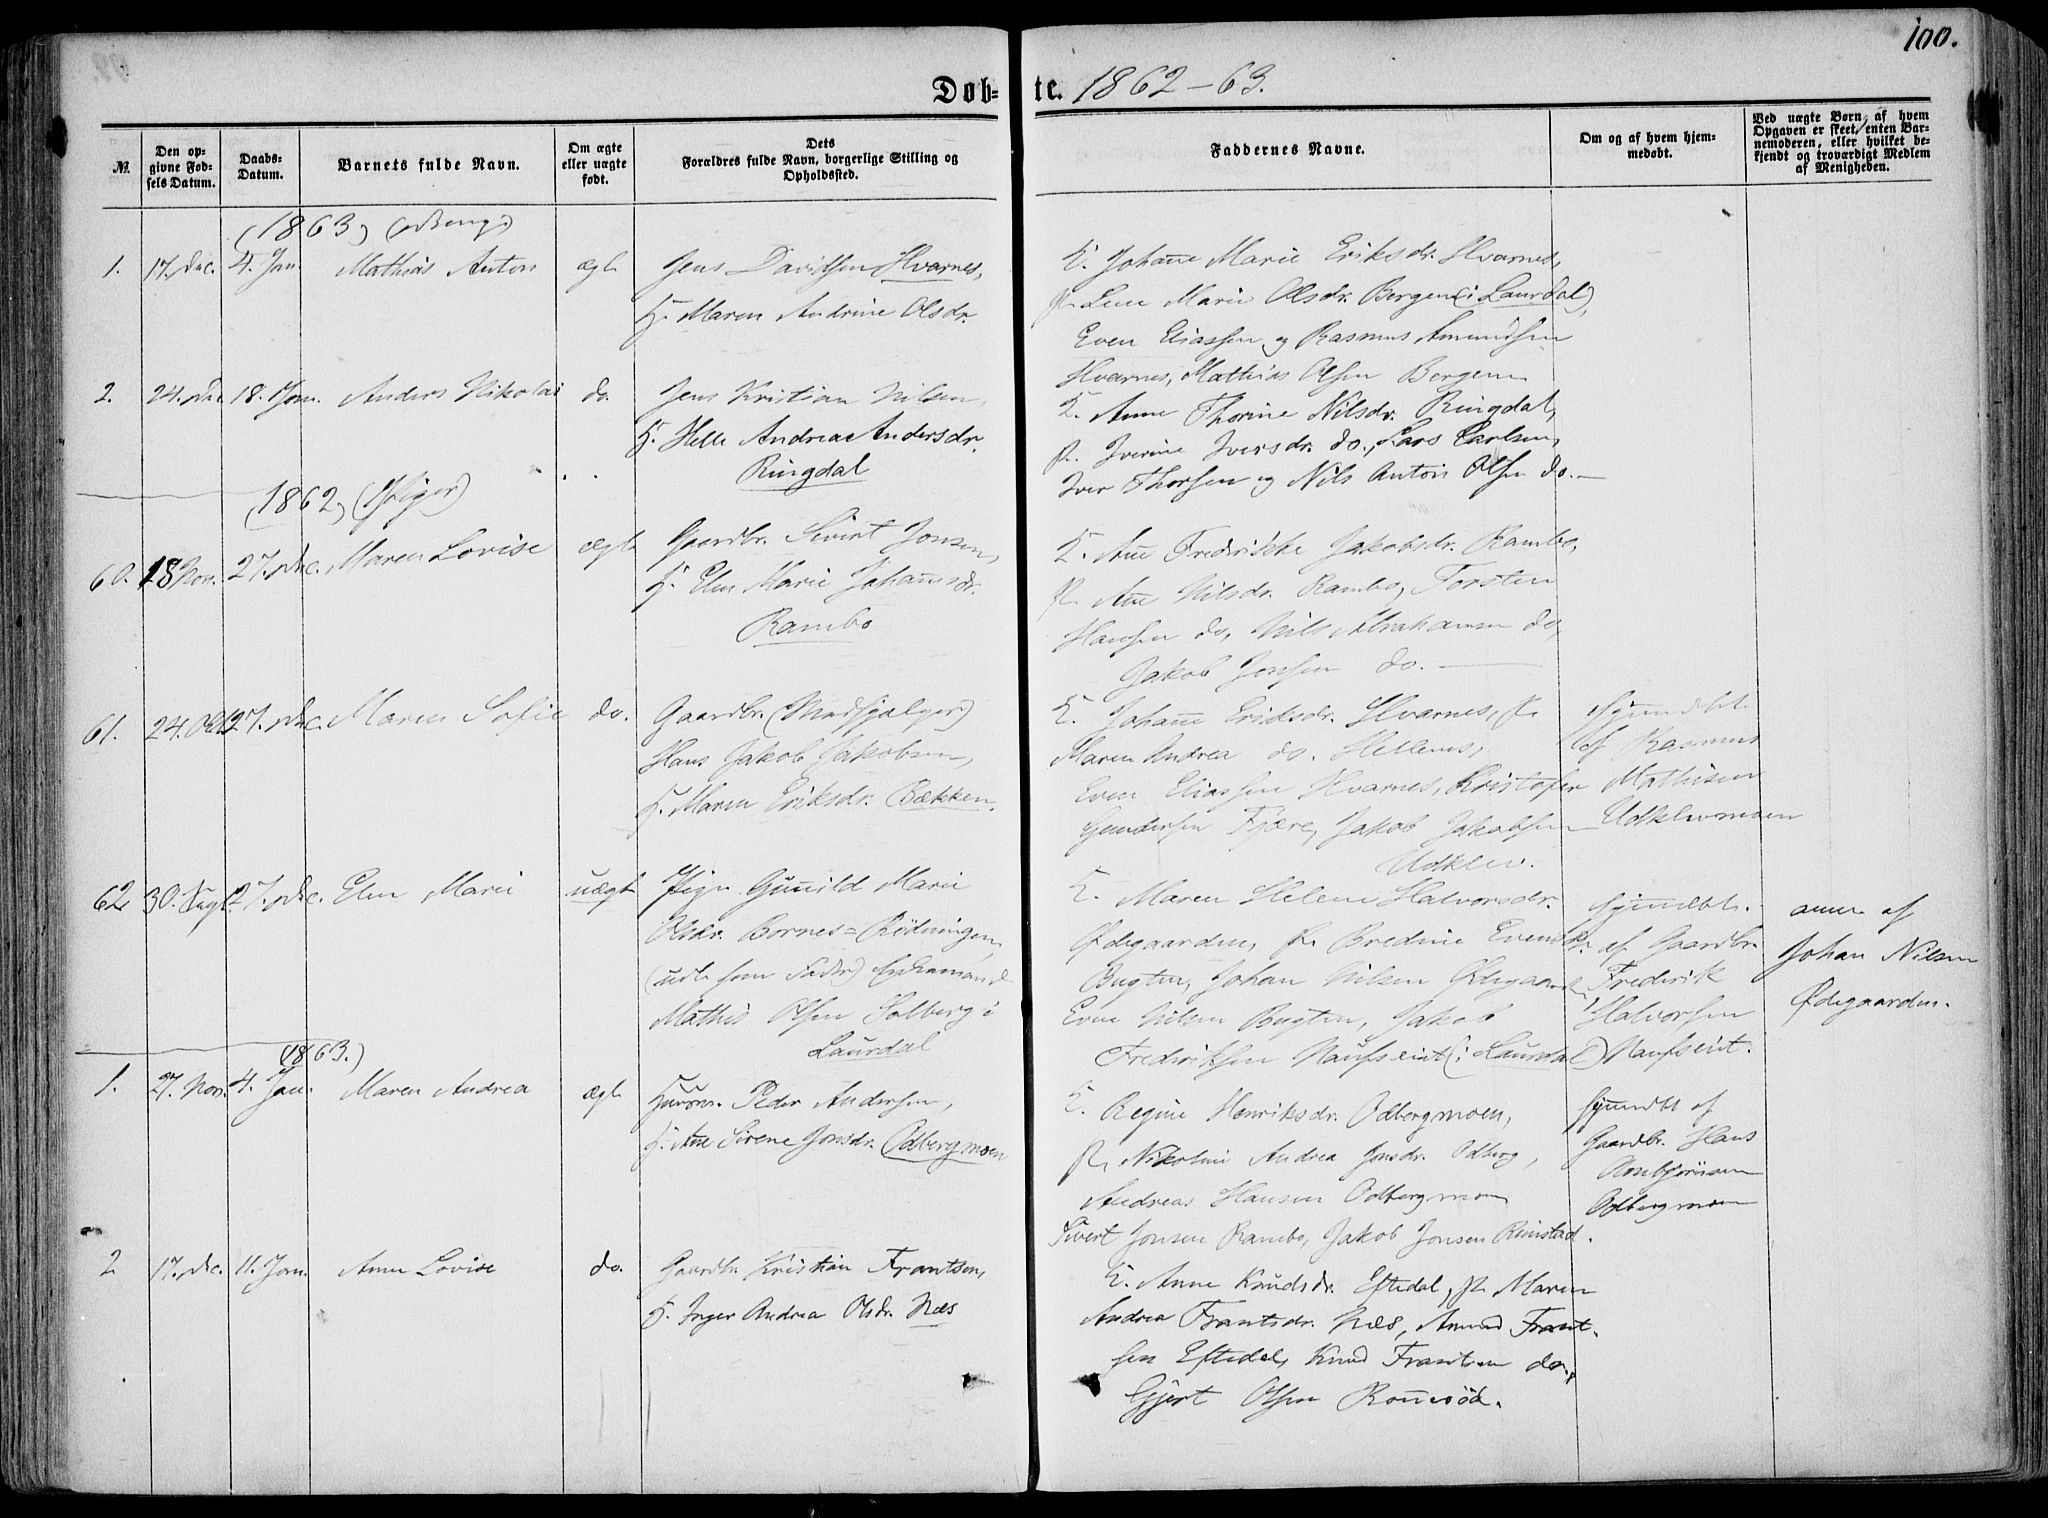 100.
Døb- te. 1862-63.
№.
Den op-
givne Fød-
sels Datum.
Daabs-
Datum.
Barnets fulde Navn.
Om ægte
eller uægte
født.
Dets
Forældres fulde Navn, borgerlige Stilling og
Opholdssted.
Faddernes Navne.
Om og af hvem hjem-
medøbt.
Ved uægte Børn, af hvem
Opgaven er skeet, enten Bar-
nemoderen, eller hvilket be-
kjendt og troværdigt Medlem
af Menigheden.
(1863) (Berg)
1. 17. Dec. 4. Jan. Mathias Anton ægte
Jens Davidsen Hvarnes,
H. Maren Andrine Olsdr.
K. Johanne Marie Eriksdr. Hvarnes,
P. Lene Marie Olsdr. Bergen (i Laurdal),
Even Eliassen og Rasmus Amundsen
Hvarnes, Mathias Olsen Bergen
2. 24. Dec. 18. Jan. Anders Nikolai do.
Jens Kristian Nilsen,
H. Helle Andrea Andersdr.
Ringdal
K. Anne Thorine Nilsdr. Ringdal,
P. Iverine Iversdr. do., Lars Carlsen,
Iver Thorsen og Nils Anton Olsen do.
(1862) (Styger)
60. 18 Nov. 27. Dec. Maren Lovise ægte
Gaardbr. Sivert Jonsen,
H. Elen Marie Johannsdr.
Rambo
K. Ane Fredrikke Jakobsdr. Rambo,
P. Ane Nilsdr. Rambo, Torsten
Hansen do, Nils Abrahamsen do,
Jakob Jonsen do.
61. 24. Oct. 27. Dec. Maren Sofie do.
Gaardbr.
Hans Jakob Jakobsen,
H. Maren Eriksdr. Bækken.
K. Johanne Eriksdr. Hvarnes, P.
Maren Andrea do. Hellenes,
Even Eliassen Hvarnes, Kristofer
Gundersen Fjære, Jakob Jakobsen
Udklev.
Hjemdbt.
af Rasmus
Mathisen
Udklevmoen
62 30. Aug. 27. Dec. Elen Marie uægte
Pige Gunild Marie
Olsdr. Bornes= Rödningen,
(udl. som Fader) Enkemand
Mathis Olsen Solberg i
Laurdal
K. Maren Helene Halvorsdr.
Ødegaarden, P. Bredine Evensdr.
Bugten, Johan Nilsen Ødegaarden
Even Nilsen Bugten, Jakob
Fredriksen Naufseint (i Laurdal)
Hjemdbt.
af Gaardbr.
Frederik
Halvorsen
Naufseint.
anm. af
Johan Nilsen
Ødegaarden.
(1863.)
1. 27. Nov. 4. Jan. Maren Andrea ægte
Huusm. Peder Andersen,
H. Ane Sirene Jonsdr. Odbergmoen
K. Regine Henriksdr. Odbergmoen,
P. Nikoline Andrea Jonsdr. Odberg,
Andreas Hansen Odbergmoen
Sivert Jonsen Rambo, Jakob Jonsen Rimstad.
Hjemdbt af
Gaardbr. Hans
Arnbjørnsen
Odbergmoen
2 17. Dec. 11. Jan. Anne Lovise do.
Gaardbr. Kristian Frantsen,
H. Inger Andrea Olsdr. Næs
K. Anne Knudsdr. Eftedal, P. Maren
Andrea Frantsdr. Næs, Amund Frant-
sen Eftedal, Knud Frantsen do.,
Gjert Olsen Ronnesöd.